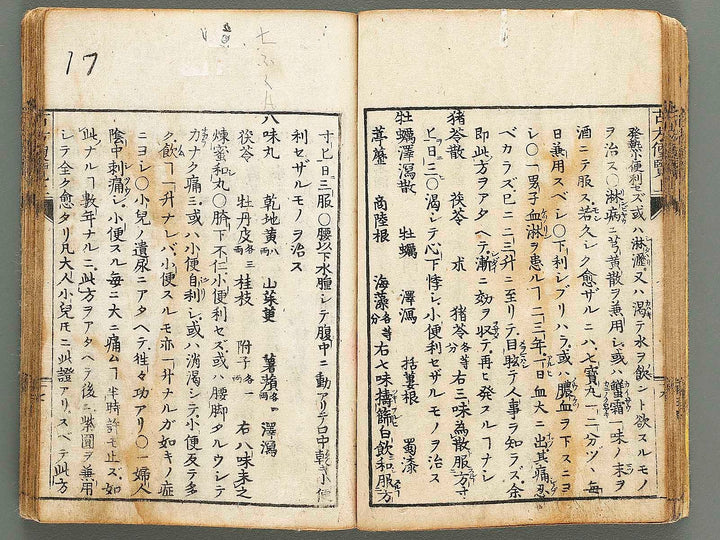 発熱小便利セズ或ハ淋瀝又ハ渇テ水ヲ飲ント欲スルモノ
ヲ治ス○淋病ニ芎黄散ヲ兼用シ或ハ蟹霜一味ノ末ヲ
酒ニテ服ス若久シク愈ザルニハ七寳丸一二分ツヽ毎
日兼用スベシ○下利シブリハラ或ハ膿血ヲ下スニヨ
シ○一男子血淋ヲ患ルヿ二三年一日血大ニ出其痛忍
ベカラズ已ニ二三升ニ至リテ目眩テ人事ヲ知ラズ余
即此方ヲアタヘテ漸ニ効ヲ収テ再ヒ発スルヿナシ
猪苓散 茯苓 朮 猪苓各等分 右三味為散服方寸
匕日三○渇シテ心下悸シ小便利セザルモノヲ治ス
牡蠣澤瀉散 牡蠣 澤瀉 括蔞根 蜀漆
葶藶 商陸根 海藻各等分 右七味擣篩白飲和服方
寸匕日三服○腰以下水腫シテ腹中ニ動アリテ口中乾小便
利セザルモノヲ治ス
八味丸 乾地黄八両 山茱萸 薯蕷各四両 澤瀉
茯苓 牡丹皮各三両 桂枝 附子各一両 右八味末之
煉蜜和丸○臍下不仁小便利セズ或ハ腰脚タルウシテ
カナク痛ミ或ハ小便自利シ或ハ消渇シテ小便反テ多
ク飲ヿ一升ナレバ小便スルモ亦一升ナルガ如キノ症
ニヨシ○小児ノ遺尿ニアタヘテ徃々功アリ○一婦人
陰中刺痛シ小便スル毎ニ大ニ痛ムヿ半時許モ止ズ如
此ナルヿ數年ナルニ此方ヲアタヘテ後ニ紫圓ヲ兼用
シテ全ク愈タリ凡大人小児𪜈ニ此證アリスベテ此方
17